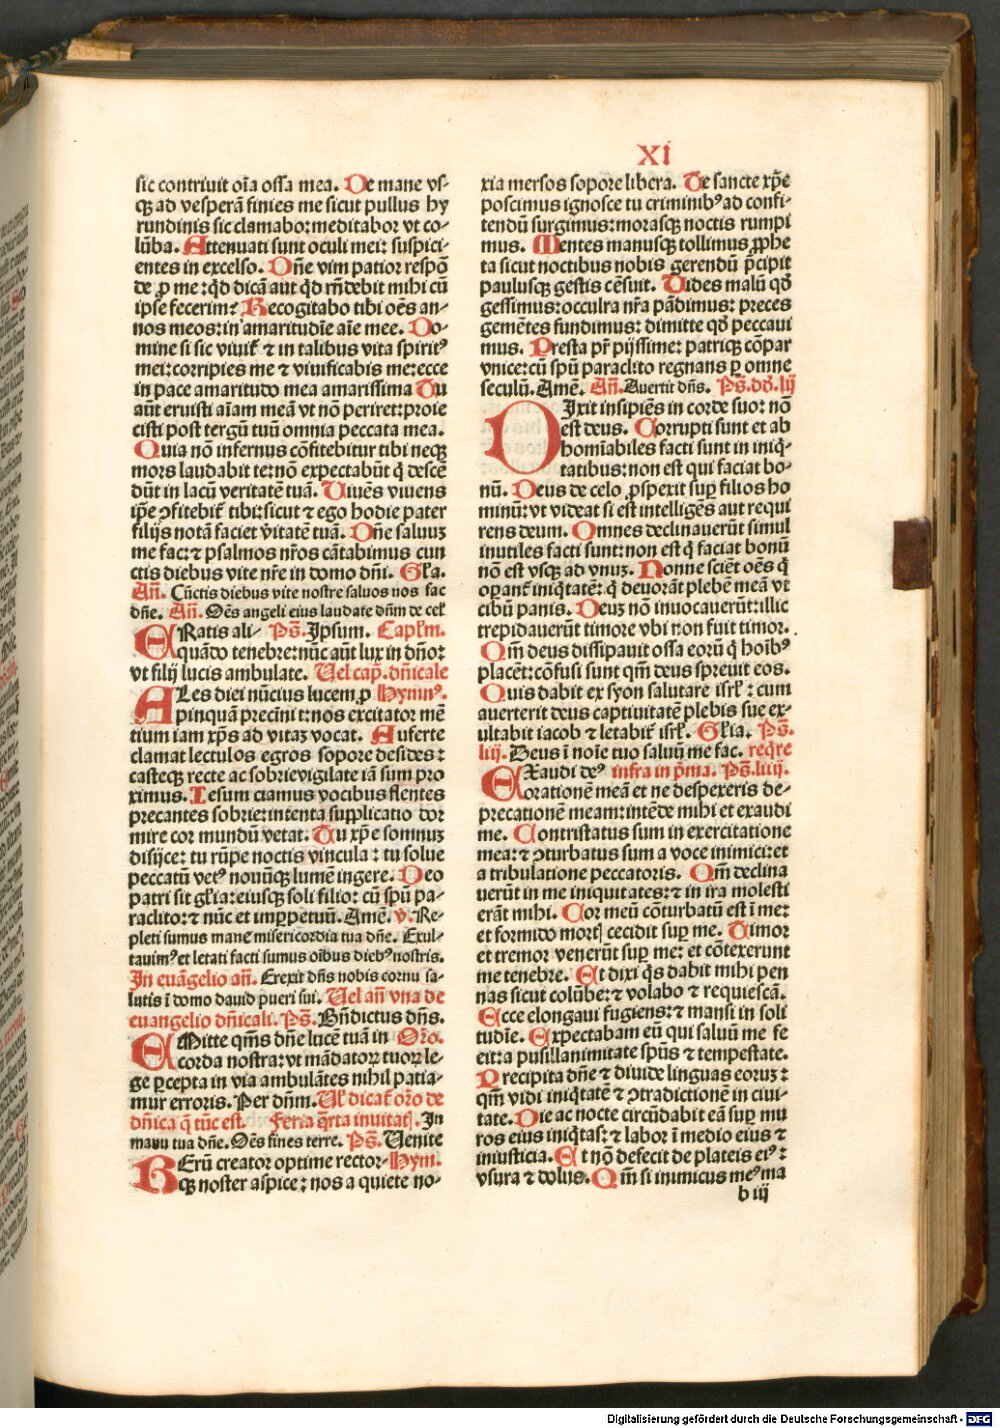 XI
sic contriuit oīa ossa mea. De mane vs-
qꝫ ad vesperā finies me sicut pullus hy
rundinis sic clamabo: meditabor vt co-
lūba. Attenuati sunt oculi mei: suspici-
entes in excelso. Dn̄e vim patior respō
de ꝓ me: qd̄ dicā aut qd̄ rn̄debit mihi cū
ipse fecerim? Recogitabo tibi oēs an-
nos meos: in amaritudīe aīe mee. Do-
mine si sic viuiť ⁊ in talibus vita spiritꝰ
mei: corripies me ⁊ viuificabis me: ecce
in pace amaritudo mea amarissima Tu
aūt eruisti aīam meā vt nō periret: proie
cisti post tergū tuū omnia peccata mea.
Quia nō infernus cōfitebitur tibi neqꝫ
mors laudabit te: nō expectabūt q̄ descē
dūt in lacū veritatē tuā. Viuēs viuens
ip̄e ꝯfitebiť tibi: sicut ⁊ ego hodie pater
filijs notā faciet v̄itatē tuā. Dn̄e saluuꝫ
me fac: ⁊ psalmos nr̄os cātabimus cun
ctis diebus vite nr̄e in domo dn̄i. Gľa.
An̄. Cūctis diebus vite nostre saluos nos fac
dn̄e. An̄. Oēs angeli eius laudate dn̄m de cel̄
ERatis ali- Ps̄. Ipsum. Capľm.
quādo tenebre: nūc aūt lux in dn̄o:
vt filij lucis ambulate. Vel cap̄. dn̄icale
ALes diei nūcius lucem ꝓ Hymnꝰ.
pinquā precīnit: nos excitator mē
tium iam xp̄s ad vitaꝫ vocat. Auferte
clamat lectulos egros sopore desides:
casteqꝫ recte ac sobrie vigilate iā sum pro
ximus. Iesum ciamus vocibus flentes
precantes sobrie: intenta supplicatio dor
mire cor mundū vetat. Tu xp̄e somnuꝫ
disijce: tu rūpe noctis vincula: tu solue
peccatū vetꝰ nouūqꝫ lumē ingere. Deo
patri sit gľia: eiusqꝫ soli filio: cū spū pa-
raclito: ⁊ nūc et imꝑpetuū. Amē. v̄. Re-
pleti sumus mane misericordia tua dn̄e. Exul-
tauimꝰ et letati facti sumus oībus diebꝰ nostris.
In euāgelio an̄. Erexit dn̄s nobis cornu sa-
lutis ī domo dauid pueri sui. Vel an̄ vna de
euangelio dn̄icali. Ps̄. Bn̄dictus dn̄s.
EMitte qm̄s dn̄e lucē tuā in Orō.
corda nostra: vt mādatoꝝ tuoꝝ le-
ge ꝑcepta in via ambulātes nihil patia-
mur erroris. Per dn̄m. Vľ dicať orō de
dn̄ica q̄ tūc est. Feria q̄rta inuitaꝭ. In
manu tua dn̄e. Oēs fines terre. Ps̄. Venite
REꝝ creator optime rector- Hym.
qꝫ noster aspice: nos a quiete no-
xia mersos sopore libera. Te sancte xp̄e
poscimus ignosce tu criminibꝰ ad confi-
tendū surgimus: morasqꝫ noctis rumpi
mus. Mentes manusqꝫ tollimus ꝓphe
ta sicut noctibus nobis gerendū p̄cipit
paulusqꝫ gestis cēsuit. Vides malū qd̄
gessimus: occulra nr̄a pādimus: preces
gemētes fundimus: dimitte qd̄ peccaui
mus. Presta pr̄ pijssime: patriqꝫ cōpar
vnice: cū spū paraclito regnans ꝑ omne
seculū. Amē. An̄. Auertit dn̄s. Ps̄. dd̄. lij
DIxit insipiēs in corde suo: nō
est deus. Corrupti sunt et ab
homīabiles facti sunt in iniq̄-
tatibus: non est qui faciat bo-
nū. Deus de celo ꝓspexit suꝑ filios ho
minū: vt videat si est intelligēs aut requi
rens deum. Omnes declinauerūt simul
inutiles facti sunt: non est q̄ faciat bonū
nō est vsqꝫ ad vnuꝫ. Nonne sciēt oēs q̄
oꝑanť iniq̄tatē: q̄ deuorāt plebē meā vt
cibū panis. Deuꝫ nō inuocauerūt: illic
trepidauerūt timore vbi non fuit timor.
Qm̄ deus dissipauit ossa eorū q̄ hoībꝰ
placēt: cōfusi sunt qm̄ deus spreuit eos.
Quis dabit ex syon salutare isrľ: cum
auerterit deus captiuitatē plebis sue ex-
ultabit iacob ⁊ letabiť isrľ. Gľia. Ps̄.
liij. Deus ī noīe tuo saluū me fac. reqre
EXaudi deꝰ infra in p̄ma. Ps̄. liiij.
orationē meā et ne despexeris de-
precationē meam: intēde mihi et exaudi
me. Contristatus sum in exercitatione
mea: ⁊ ꝯturbatus sum a voce inimici: et
a tribulatione peccatoris. Qm̄ declina
uerūt in me iniquitates: ⁊ in ira molesti
erāt mihi. Cor meū cōturbatū est ī me:
et formido mortꝭ cecidit suꝑ me. Timor
et tremor venerūt suꝑ me: et cōtexerunt
me tenebre. Et dixi q̄s dabit mihi pen
nas sicut colūbe: ⁊ volabo ⁊ requiescā.
Ecce elongaui fugiens: ⁊ mansi in soli
tudīe. Expectabam eū qui saluū me fe
cit: a pusillanimitate spūs ⁊ tempestate.
Precipita dn̄e ⁊ diuide linguas eoruꝫ:
qm̄ vidi iniq̄tatē ⁊ ꝯtradictionē in ciui-
tate. Die ac nocte circūdabit eā suꝑ mu
ros eius iniq̄tas: ⁊ labor ī medio eius ⁊
iniusticia. Et nō defecit de plateis eiꝰ:
vsura ⁊ dolus. Qm̄ si inimicus meꝰ ma
b iij
Digitalisierung gefördert durch die Deutsche Forschungsgemeinschaft - DFG